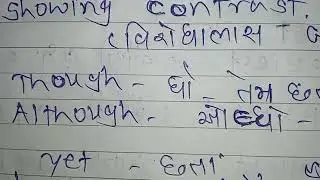 Showing contrast.
(વિરોધાભાસ
Though - ધો - તેમ છ
Although - ઓલ્ધો -
yet - છતાં